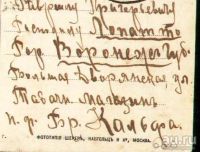 Гаврилу Григорьевичу
Господину Лопатто
Гор. Воронеж Губ.
Большая Дворянская ул.
Табачн. магазин
н-ф. Бр. Кальфа.
ФОТОТИПІЯ ШЕРЕРЪ, НАБГОЛЬЦЪ И Кº, МОСКВА.